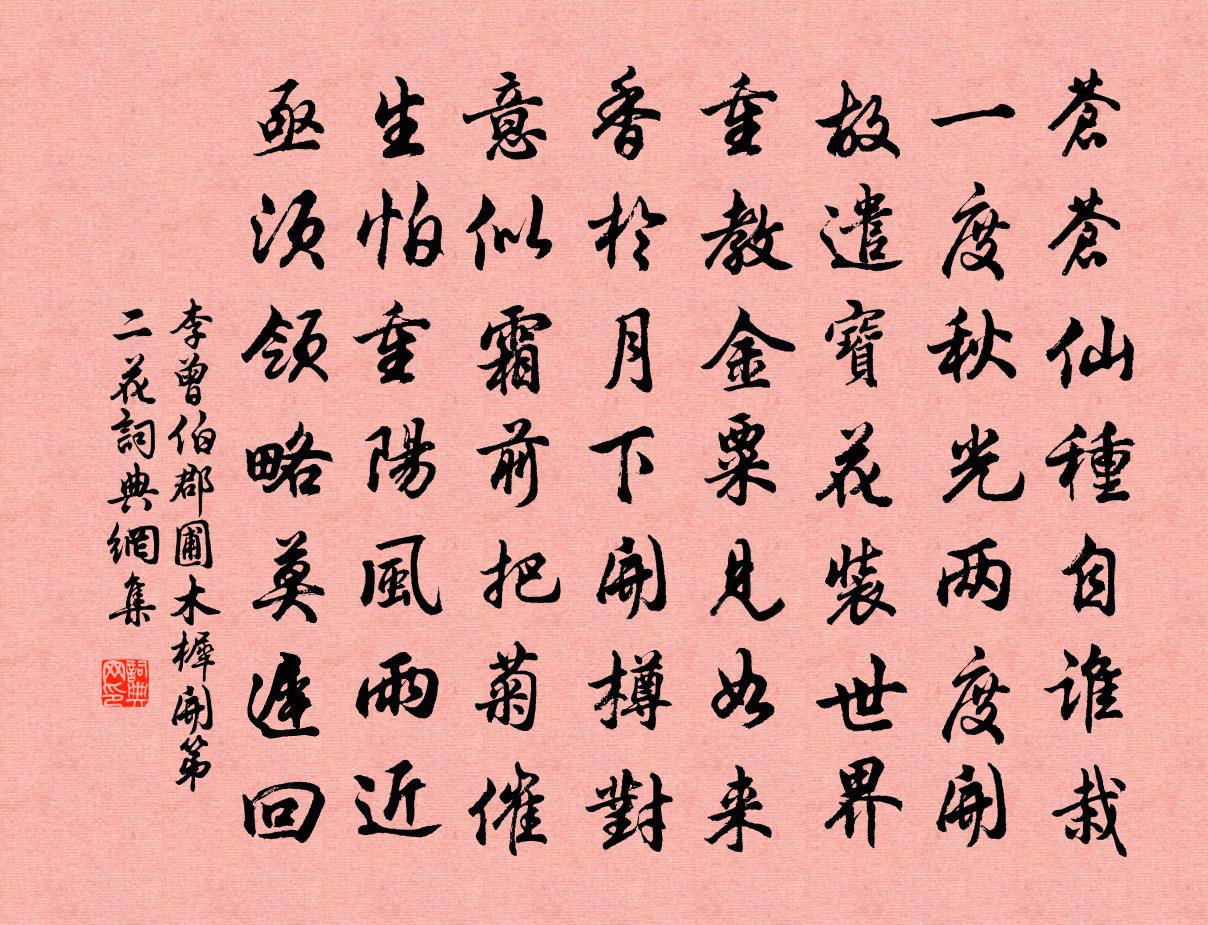 蒼蒼仙種自誰栽
一度秋光兩度開
故遣寶花裝世界
重教金粟見如来
香於月下開樽對
意似霜前把菊催
生怕重陽風雨近
亟須領略莫遲回
李曾伯郡圃木樨開第
二花詞典網集
詞典
网印